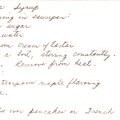 Syrup
in saucepan:
sugar
water
cream of tartar
a boil, stirring constantly.
Remove from heat.
teaspoon maple flavoring
over pancakes or French